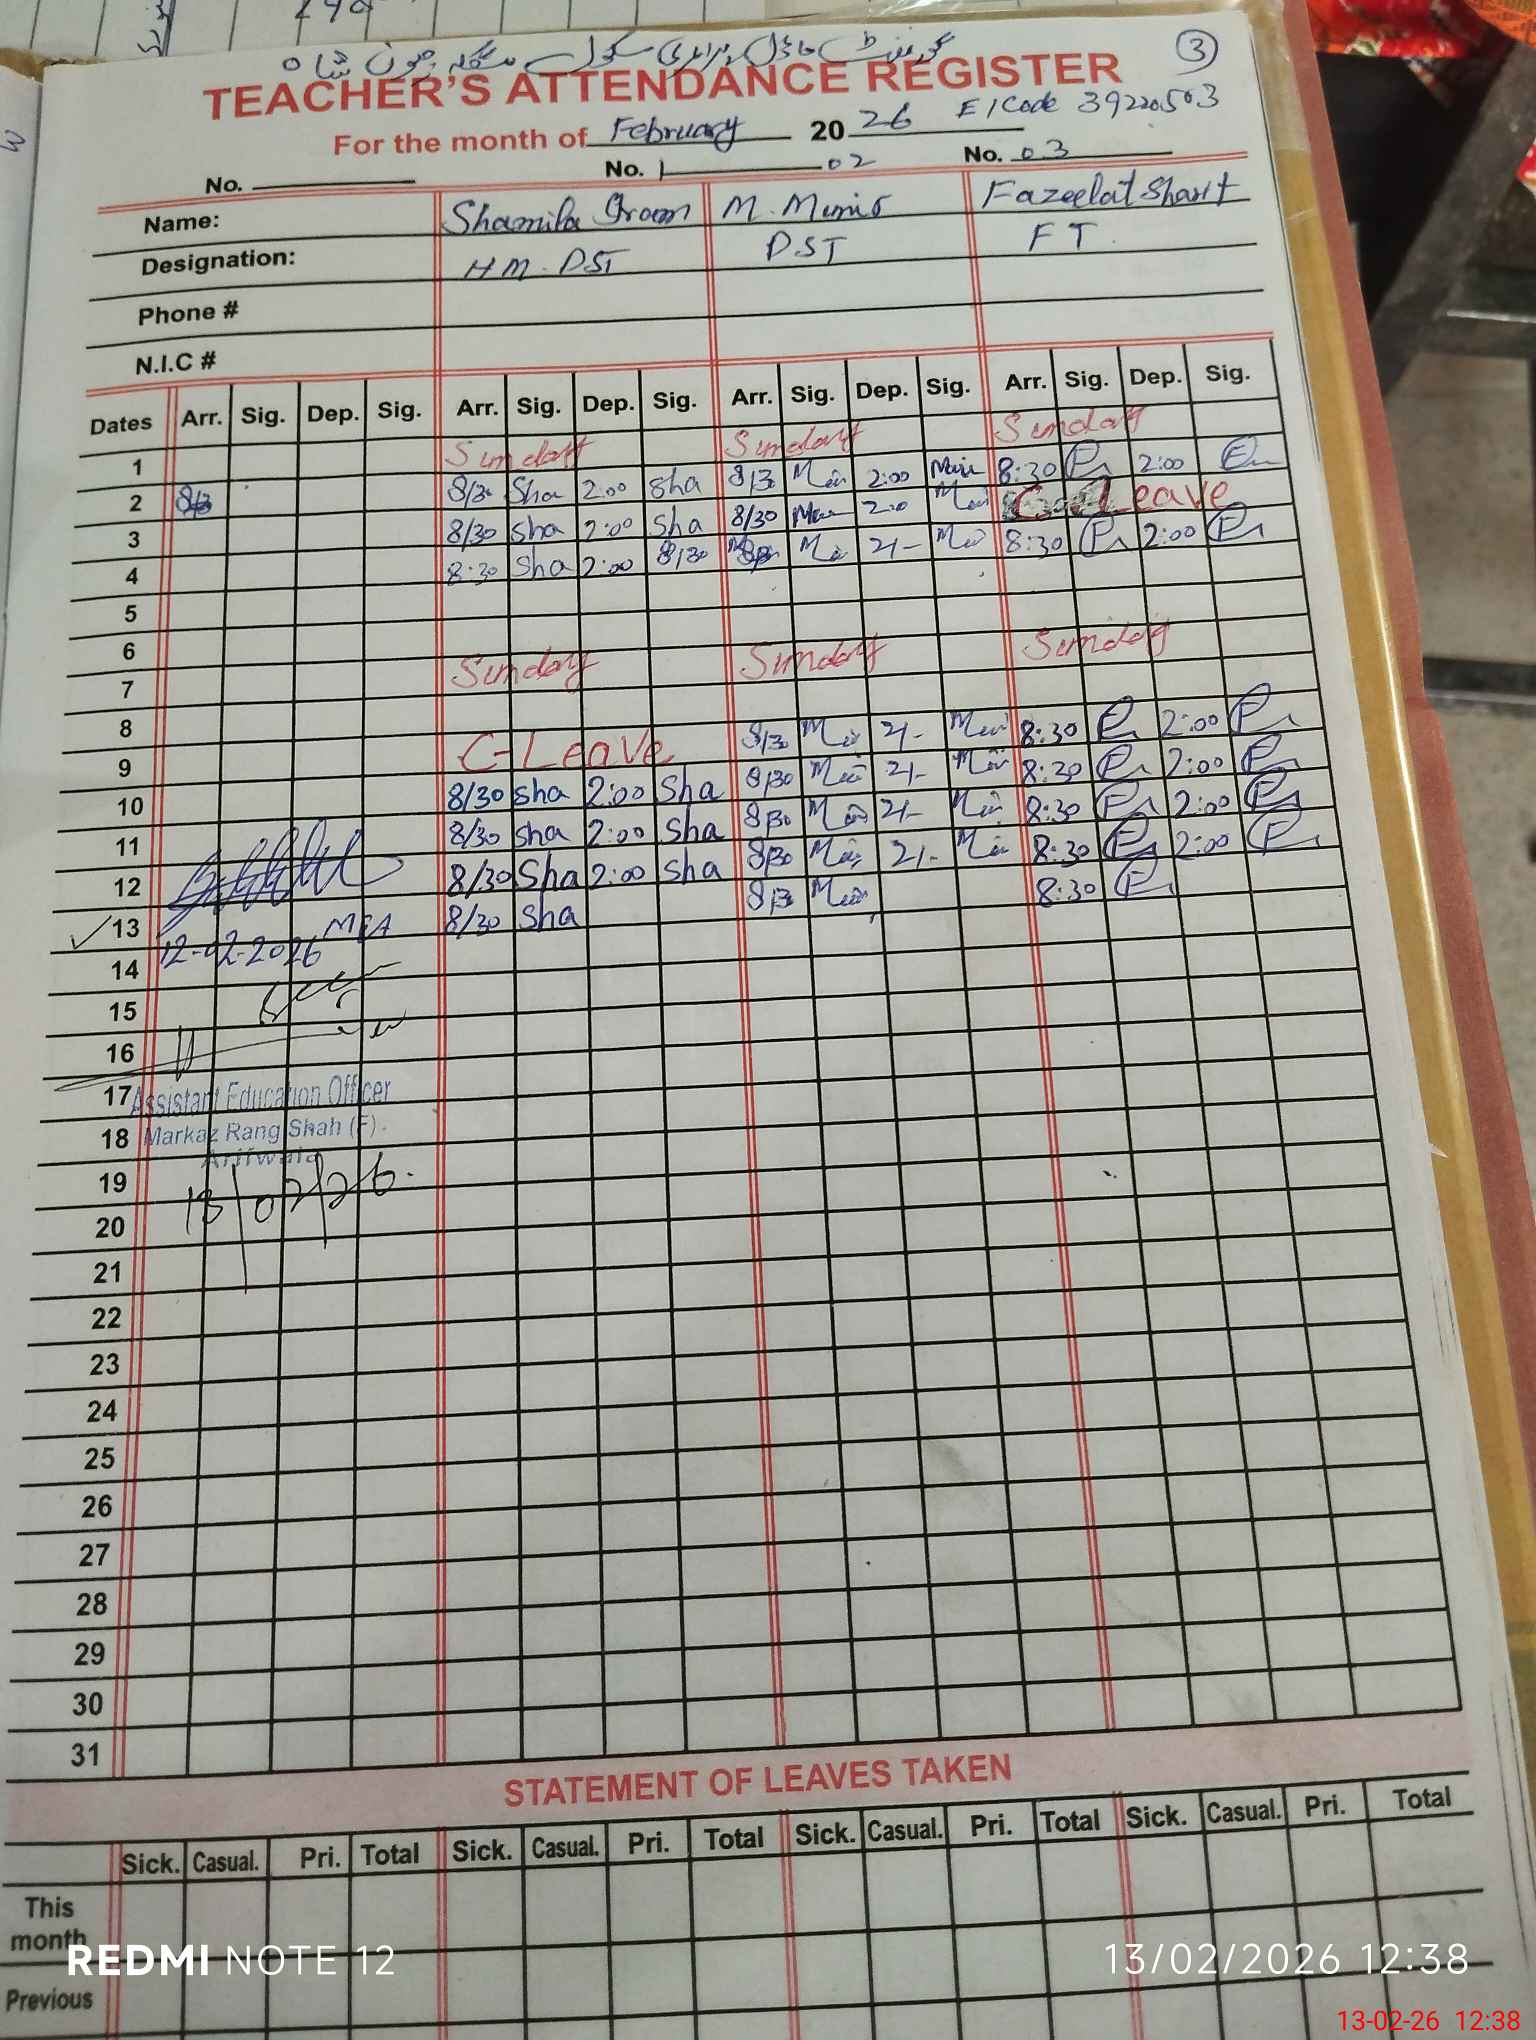 گورنمنٹ ماڈل پرائمری سکول
3
TEACHER'S ATTENDANCE REGISTER
For the month of February 2026 E/Code 39220503
No. No. 1 02 No. 03
Name: Shamila M. Munir Fazeelat Sharif
Designation: HM. PST PST FT
Phone #
N.I.C #
Dates Arr. Sig. Dep. Sig. Arr. Sig. Dep. Sig. Arr. Sig. Dep. Sig. Arr. Sig. Dep. Sig.
1 Sunday Sunday Sunday
2 8/30 Sha 2:00 Sha 8/30 2:00 8:30 2:00
3 8/30 Sha 2:00 Sha 8/30 Leave
4 8:30 Sha 2:00 8/30 2/- 8:30 2:00
5
6
7 Sunday Sunday Sunday
8
9 C-Leave 8/30 2/- 8:30 2:00
10 8/30 Sha 2:00 Sha 8/30 2/- 8:30 2:00
11 8/30 Sha 2:00 Sha 8/30 2/- 8:30 2:00
12 8/30 Sha 2:00 Sha 8/30 2/- 8:30 2:00
13 8/30 Sha 8/30 8:30
MEA
12-02-2026
14
15
16
17 Assistant Education Officer
18 Markaz Rang Shah (F).
Arifwala
19 13/02/26.
20
21
22
23
24
25
26
27
28
29
30
31
STATEMENT OF LEAVES TAKEN
Sick. Casual. Pri. Total Sick. Casual. Pri. Total Sick. Casual. Pri. Total Sick. Casual. Pri. Total
This month
Previous
REDMI NOTE 12
13/02/2026 12:38
13-02-26 12:38